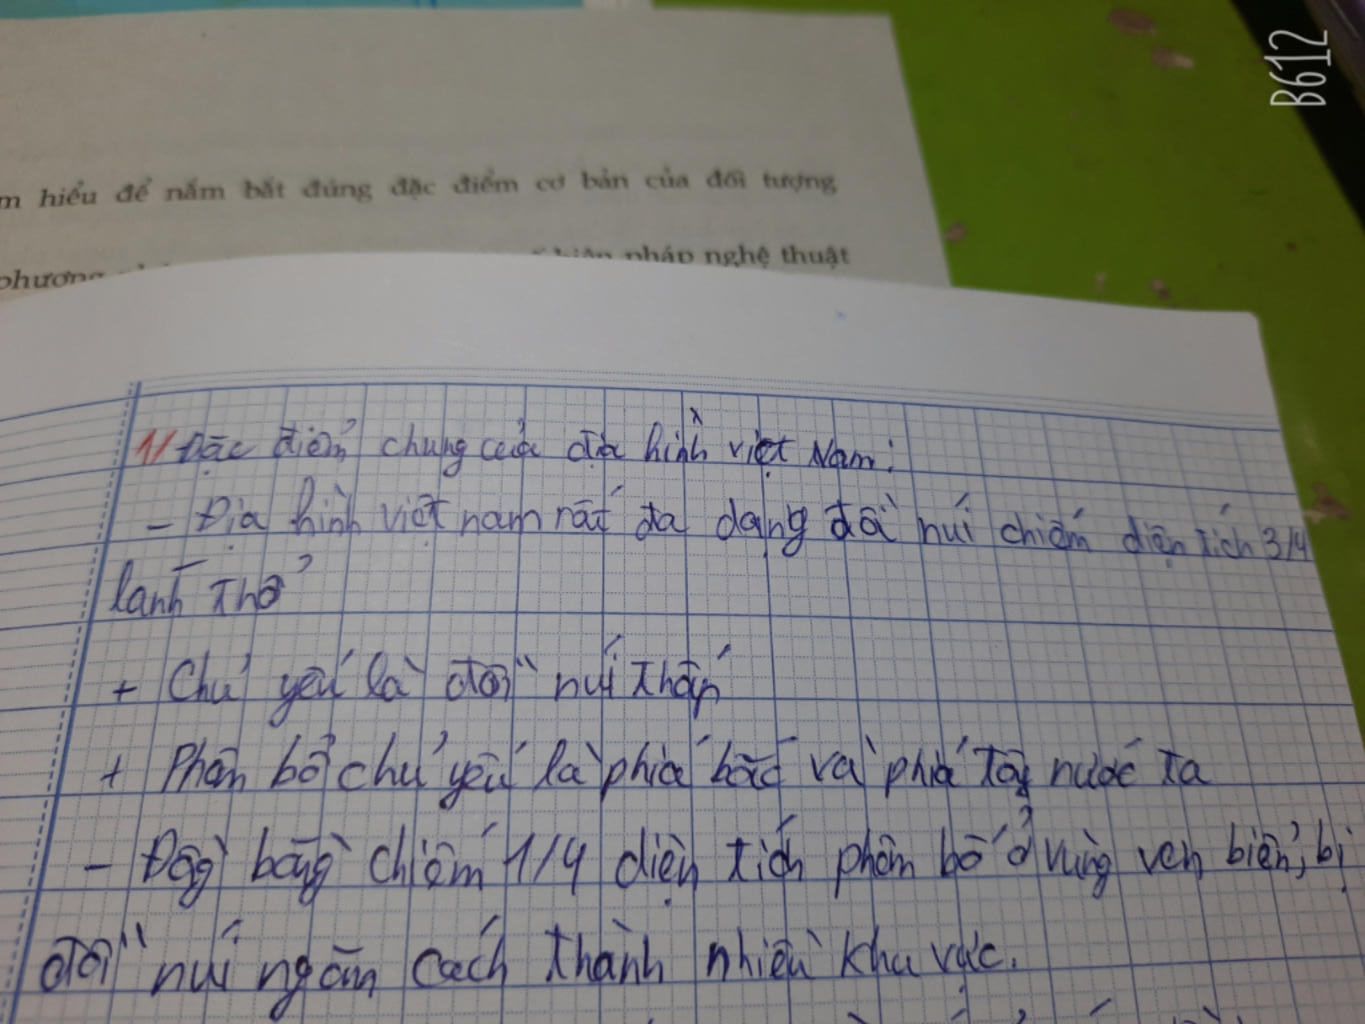 B612
m hiểu để nắm bắt đúng đặc điểm cơ bản của đối tượng
phương biện pháp nghệ thuật
1/ Đặc điểm chung của địa hình việt Nam:
- Địa hình việt nam rất đa dạng đồi núi chiếm diện tích 3/4
lãnh thổ
+ Chủ yếu là đồi núi thấp
+ Phân bổ chủ yếu là phía bắc và phía tây nước ta
- Đồng bằng chiếm 1/4 diện tích phân bố ở vùng ven biển, bị
đồi núi ngăn cách thành nhiều khu vực.